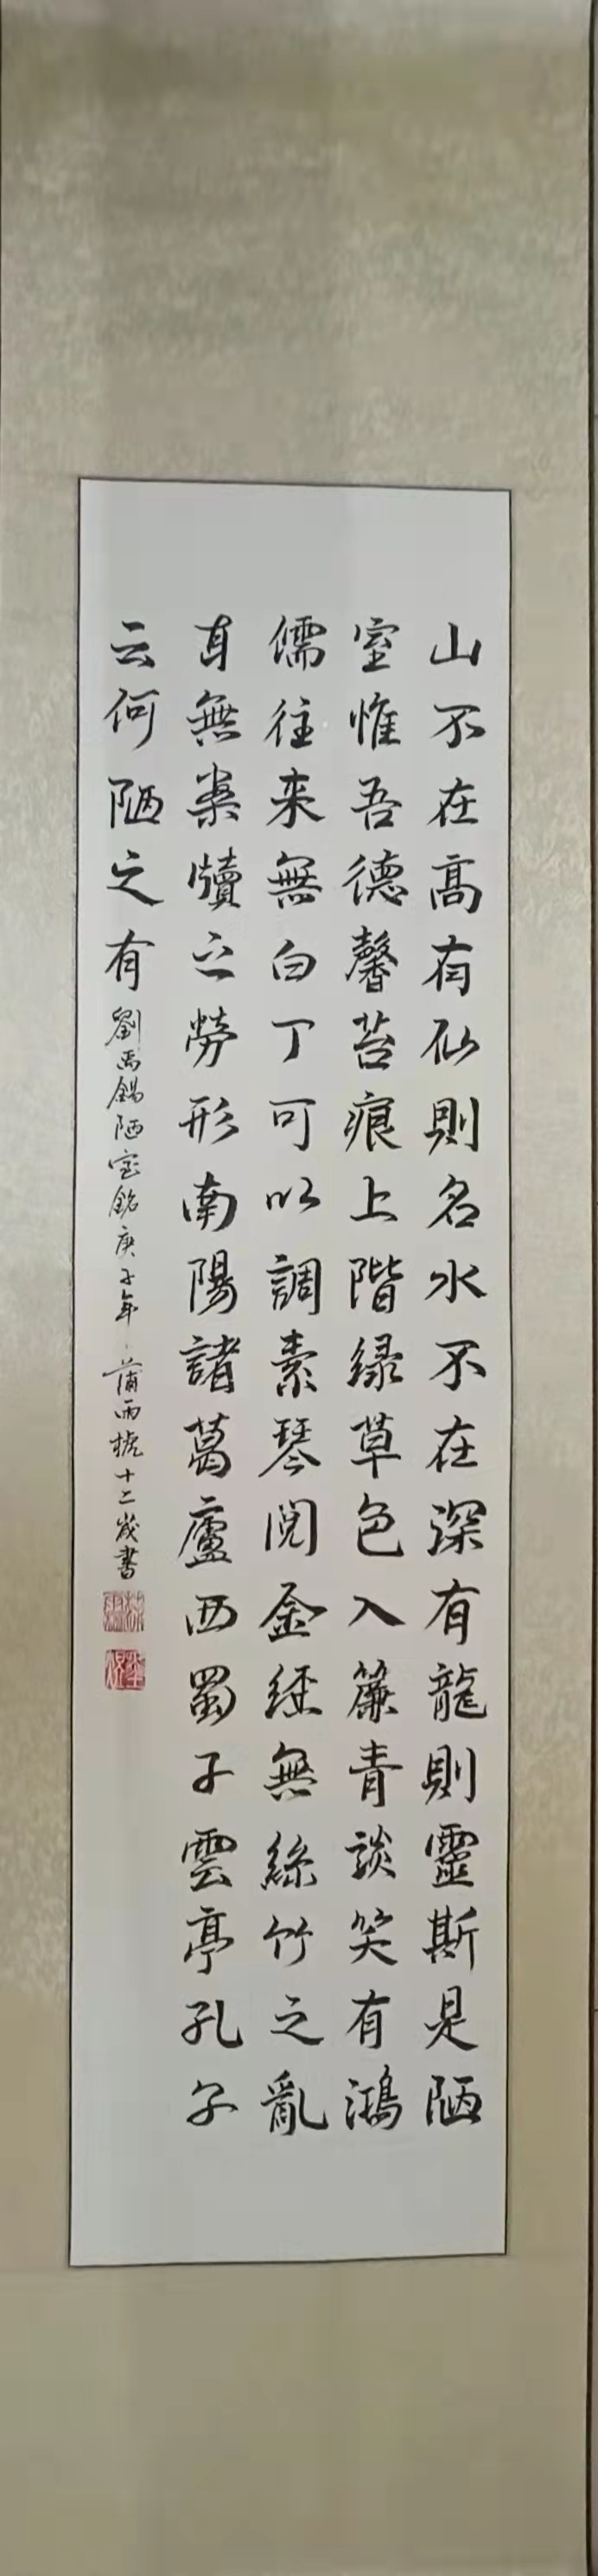 山不在高有仙則名水不在深有龍則靈斯是陋
室惟吾德馨苔痕上階緑草色入簾青談笑有鴻
儒往来無白丁可以調素琴閲金經無絲竹之亂
耳無案牘之勞形南陽諸葛廬西蜀子雲亭孔子
云何陋之有
劉禹錫陋室銘庚子年蒲雨 十二歲書